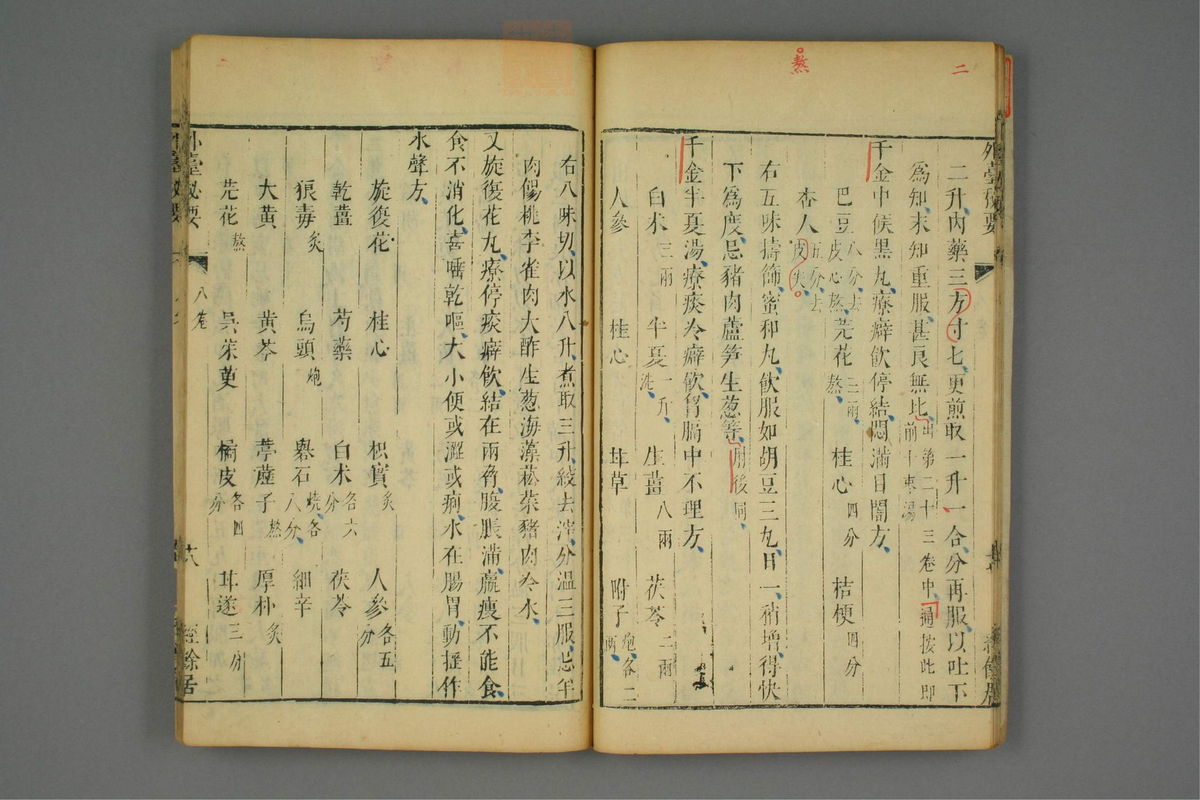 二
熬
外臺秘要
二升內藥三方寸匕更煎取一升一合分再服以吐下
為知未知重服甚良無比出第二十三卷中通按此即前十棗湯
千金中候黑丸療癖飲停結悶滿目闇方
巴豆八分去皮心熬 芫花三兩熬 桂心四分 桔梗四分
杏人五分去皮尖
右五味擣篩蜜和丸飲服如胡豆三丸日一稍增得快
下為度忌豬肉蘆笋生葱等朋後同
千金半夏湯療痰冷癖飲胷膈中不理方
白朮三兩 半夏一升洗 生薑八兩 茯苓二兩
人參 桂心 甘草 附子炮各二兩
右八味切以水八升煮取三升絞去滓分溫三服忌羊
肉餳桃李雀肉大酢生葱海藻菘菜豬肉冷水
又旋復花丸療停痰癖飲結在兩脅腹脹滿羸瘦不能食
食不消化喜唾乾嘔大小便或澀或痢水在腸胃動搖作
水聲方
旋復花 桂心 枳實炙 人參各五分
乾薑 芍藥 白朮各六分 茯苓
狼毒炙 烏頭炮 礜石燒各八分 細辛
大黃 黃芩 葶藶子熬 厚朴炙
芫花熬 吳茱萸 橘皮各四分 甘遂三分
外臺秘要
八卷
經餘居